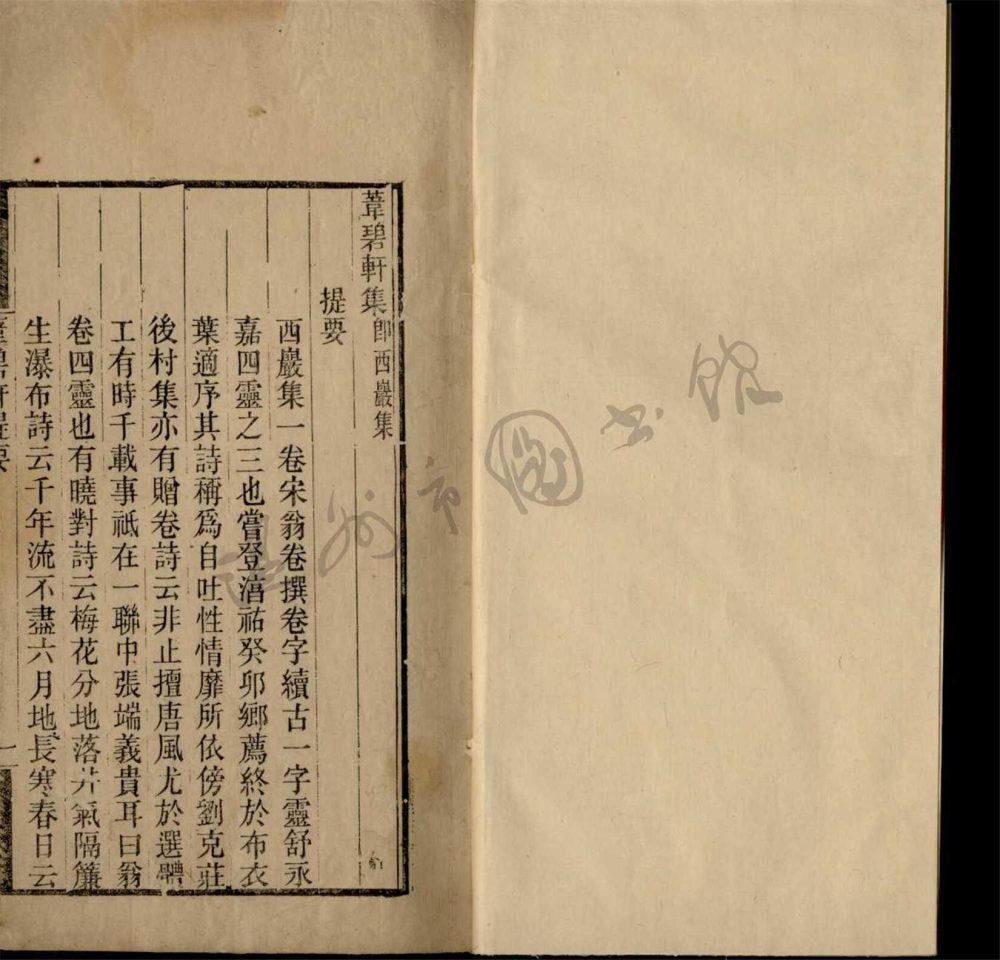 葦碧軒集即西巖集
提要
西巖集一卷宋翁卷撰卷字續古一字靈舒永
嘉四靈之三也嘗登淳祐癸卯鄉薦終於布衣
葉適序其詩稱爲自吐性情靡所依傍劉克莊
後村集亦有贈卷詩云非止擅唐風尤於選體
工有時千載事祇在一聯中張端義貴耳曰翁
卷四靈也有曉對詩云梅花分地落井氣隔簾
生瀑布詩云千年流不盡六月地長寒春日云
葦碧軒提要
一
市圖書館